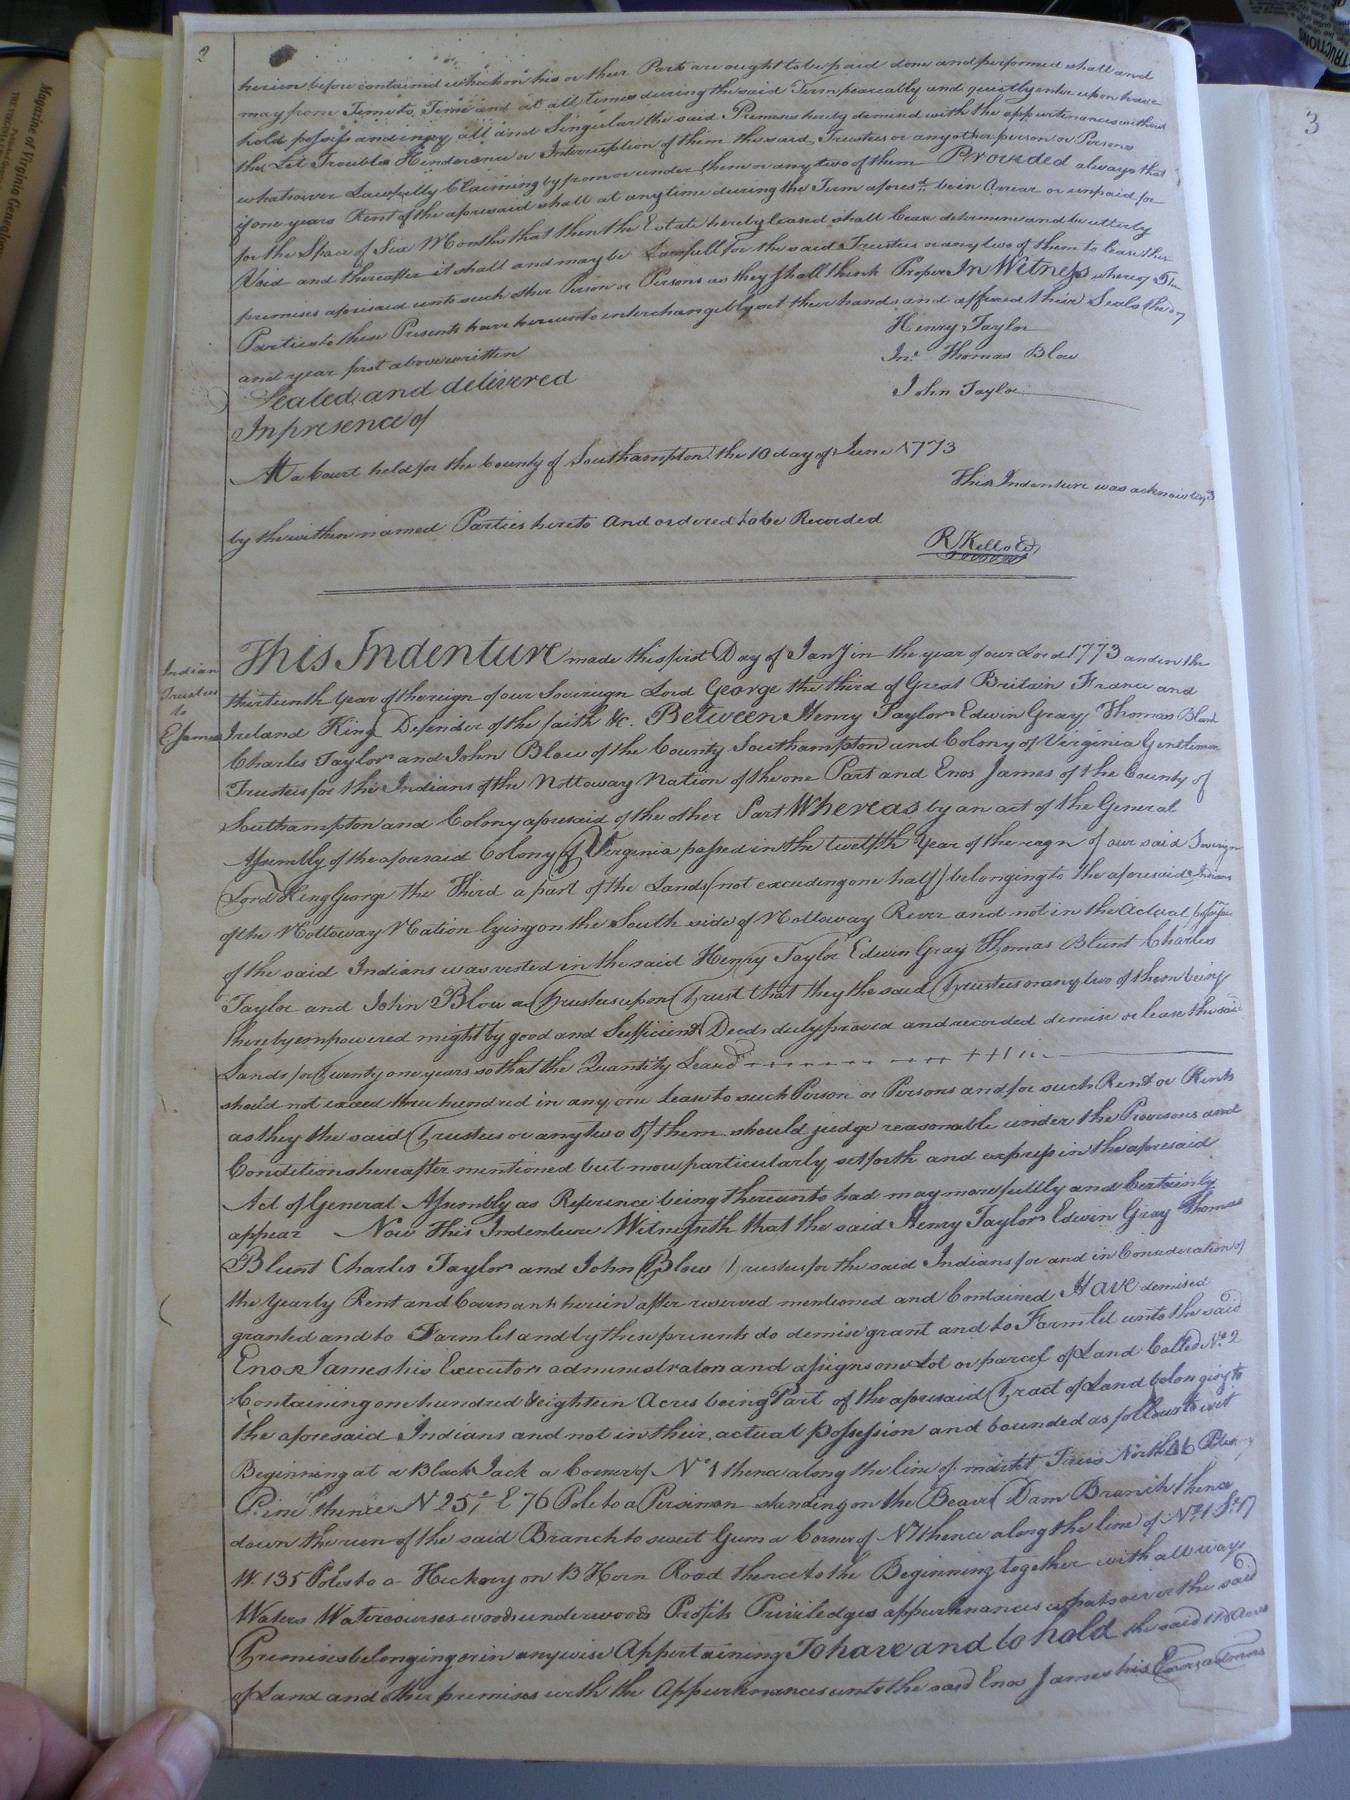 2
3
Magazine of Virginia Genealogy
herein before contained which on his or their Parts are ought to be paid done and performed shall and
may from Time to Time and at all times during the said Term peaceably and quietly enter upon have
hold possess and enjoy all and Singular the said Premises hereby demised with the appurtenances without
the Let Trouble Hinderance or Interruption of them the said Trustees or any other person or Persons
whatsoever Lawfully Claiming by from or under them or any two of them Provided always that
if one years Rent of the aforesaid shall at any time during the Term afores.d be in Arrear or unpaid for
for the Space of Six Months that then the Estate hereby leased shall Cease determine and be utterly
Void and thereafter it shall and may be Lawfull for the said Trustees or any two of them to lease the
premises aforesaid unto such other Person or Persons as they shall think Proper In Witness whereof The
Parties to these Presents have hereunto interchangebly set their hands and affixed their Seals the day
and year first above written
Henry Taylor
Jn.o Thomas Blow
John Taylor
Sealed and delivered
In presence of
At a Court held for the County of Southampton the 10 day of June 1773
This Indenture was acknowledg'd
by the within named Parties hereto and ordered to be Recorded
R Kello
Indian
Trustees
to
E James
This Indenture made this first Day of Jan'y in the year of our Lord 1773 and in the
thirteenth Year of the reign of our Sovereign Lord George the third of Great Britain France and
Ireland King Defender of the faith &c. Between Henry Taylor Edwin Gray Thomas Blunt
Charles Taylor and John Blow of the County Southampton and Colony of Virginia Gentlemen
Trustees for the Indians of the Nottoway Nation of the one Part and Enos James of the County of
Southampton and Colony aforesaid of the other Part Whereas by an act of the General
Assembly of the aforesaid Colony of Virginia passed in the twelfth Year of the reign of our said Sovereign
Lord King George the Third a part of the Lands (not exceeding one half) belonging to the aforesaid Indians
of the Nottoway Nation lying on the South side of Nottoway River and not in the Actual
of the said Indians was vested in the said Henry Taylor Edwin Gray Thomas Blunt Charles
Taylor and John Blow as Trustees upon Trust that they the said Trustees or any two of them being
thereby empowered might by good and Sufficient Deeds duly proved and recorded demise or lease the said
Lands for Twenty one years so that the Quantity Leased
should not exceed three hundred in any one lease to such Person or Persons and for such Rent or Rents
as they the said Trustees or any two of them should judge reasonable under the Provisoes and
Conditions hereafter mentioned but more particularly set forth and express in the aforesaid
Act of General Assembly as Reference being thereunto had may more fully and Certainly
appear Now This Indenture Witnesseth that the said Henry Taylor Edwin Gray Thomas
Blunt Charles Taylor and John Blow Trustees for the said Indians for and in Consideration of
the Yearly Rent and Covenants herein after reserved mentioned and Contained Have demised
granted and to Farm let and by these presents do demise grant and to Farm let unto the said
Enos James his Executors administrators and assigns one Lot or parcel of Land Called N.o 2
Containing one hundred & eighteen Acres being Part of the aforesaid Tract of Land belonging to
the aforesaid Indians and not in their actual possession and bounded as follows to wit
Beginning at a Black Jack a Corner of No 1 thence along the line of markt Trees North 46
Pine thence N 25 E 76 Pole to a Persimon standing on the Beaver Dam Branch thence
down the run of the said Branch to sweet Gum a Corner of No 1 thence along the line of No 1 S 17
W. 135 Poles to a Hickory on B Horn Road thence to the Beginning together with all ways
Waters Watercourses woods underwoods Profits Priviledges appurtenances whatsoever to the said
Premises belonging or in any wise Appertaining To have and to hold the said 118 Acres
of Land and other premises with the Appurtenances unto the said Enos James his